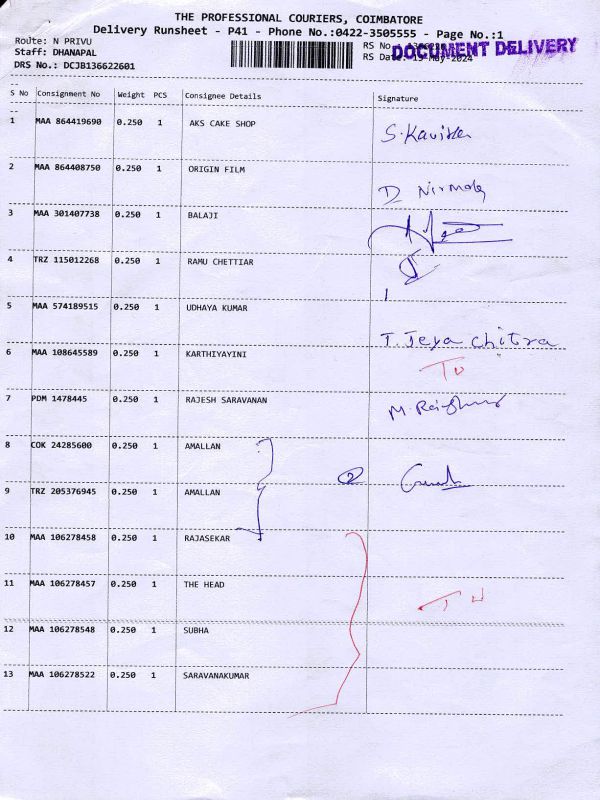 THE PROFESSIONAL COURIERS, COIMBATORE
Delivery Runsheet - P41 - Phone No.:0422-3505555 - Page No.:1
Route: N PRIVU
RS No.
DOCUMENT DELIVERY
Staff: DHANAPAL
RS Date: 15-May-2024
DRS No.: DCJB136622601
S No Consignment No Weight PCS Consignee Details Signature
1 MAA 864419690 0.250 1 AKS CAKE SHOP S. Kavitha
2 MAA 864408750 0.250 1 ORIGIN FILM D Nirmala
3 MAA 301407738 0.250 1 BALAJI
4 TRZ 115012268 0.250 1 RAMU CHETTIAR
5 MAA 574189515 0.250 1 UDHAYA KUMAR T. Jeya chitra
6 MAA 108645589 0.250 1 KARTHIYAYINI TU
7 PDM 1478445 0.250 1 RAJESH SARAVANAN
8 COK 24285600 0.250 1 AMALLAN
9 TRZ 205376945 0.250 1 AMALLAN 2
10 MAA 106278458 0.250 1 RAJASEKAR
11 MAA 106278457 0.250 1 THE HEAD TU
12 MAA 106278548 0.250 1 SUBHA
13 MAA 106278522 0.250 1 SARAVANAKUMAR